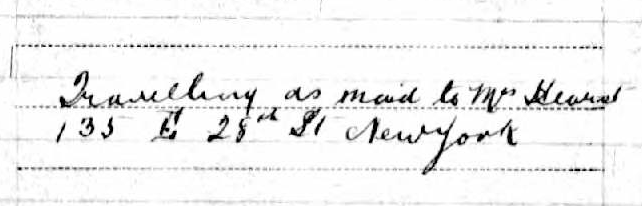 Travelling as maid to Mrs Hearst
135 E 28th St New York